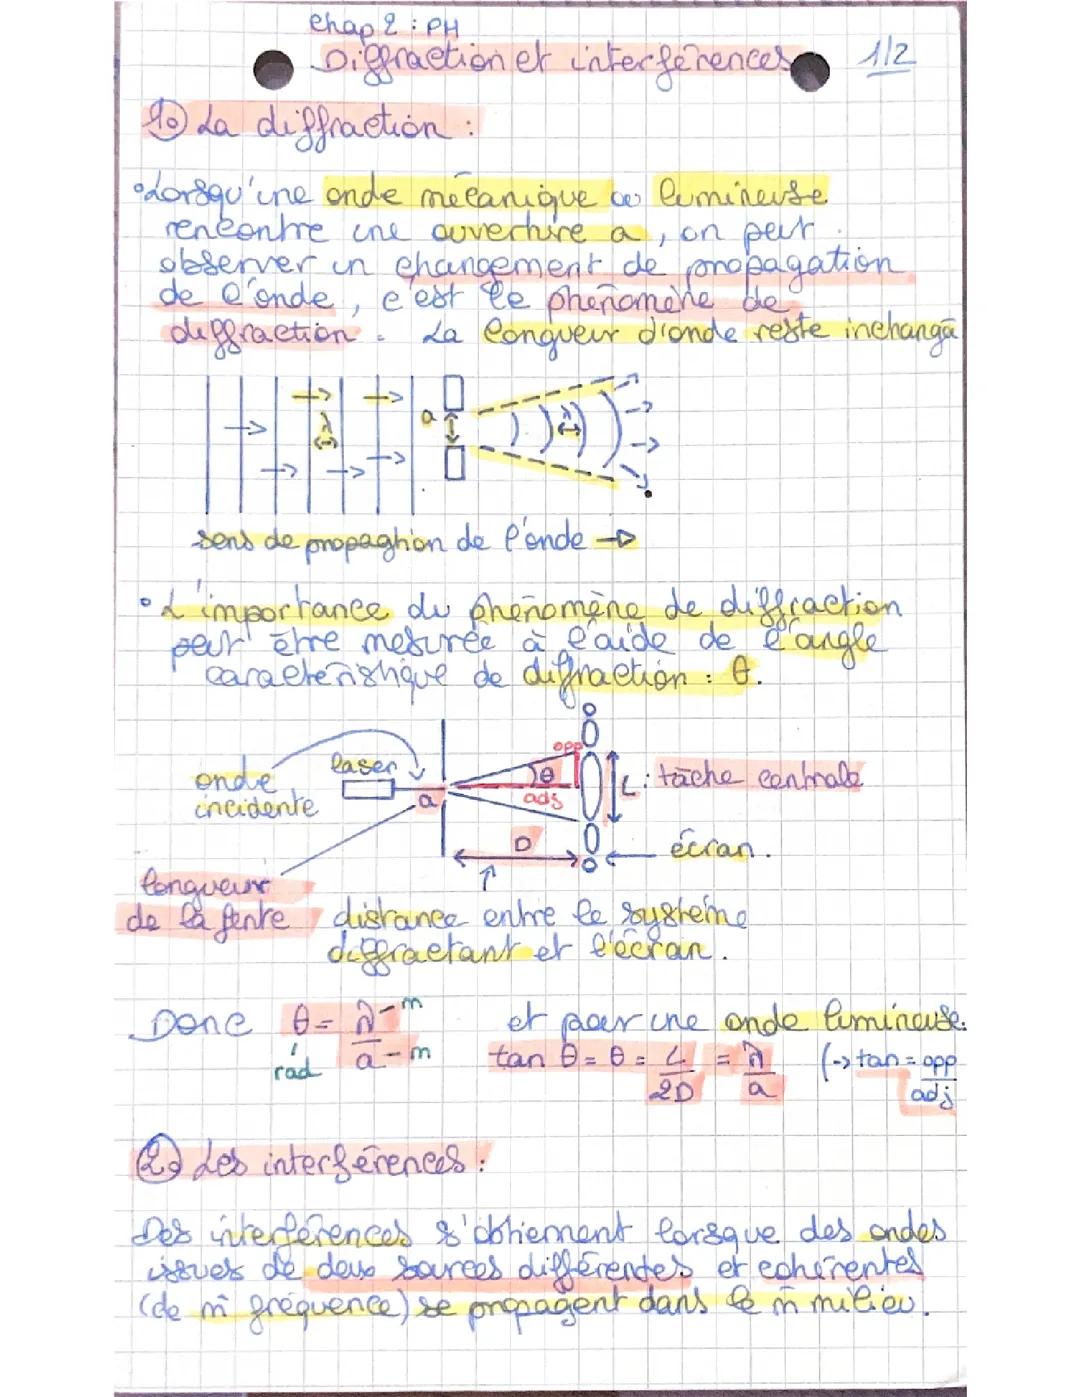 Chap 2 : PH
Diffraction et interférences
1/2
1. La diffraction :
•Lorsqu'une onde mécanique ou lumineuse
rencontre une ouverture a, on peut
observer un changement de propagation
de l'onde, c'est le phénomène de
diffraction. La longueur d'onde reste inchangé
λ
a
λ
sens de propagtion de l'onde →
• L'importance du phénomène de diffraction
peut être mesurée à l'aide de l'angle
caractéristique de diffraction : θ.
opp
onde
incidente
laser
a
θ
adj
L : tâche centrale
D
écran.
longueur
de la fente
distance entre le système
diffractant et l'écran.
Donc θ = λ/a
m
m
rad
et pour une onde lumineuse.
tan θ = θ = L/2D = λ/a
(-> tan = opp/adj
2. Les interférences :
Des interférences s'obtiennent lorsque des ondes
issues de deux sources différentes et cohérentes
(de m̂ fréquence) se propagent dans le m̂ milieu.